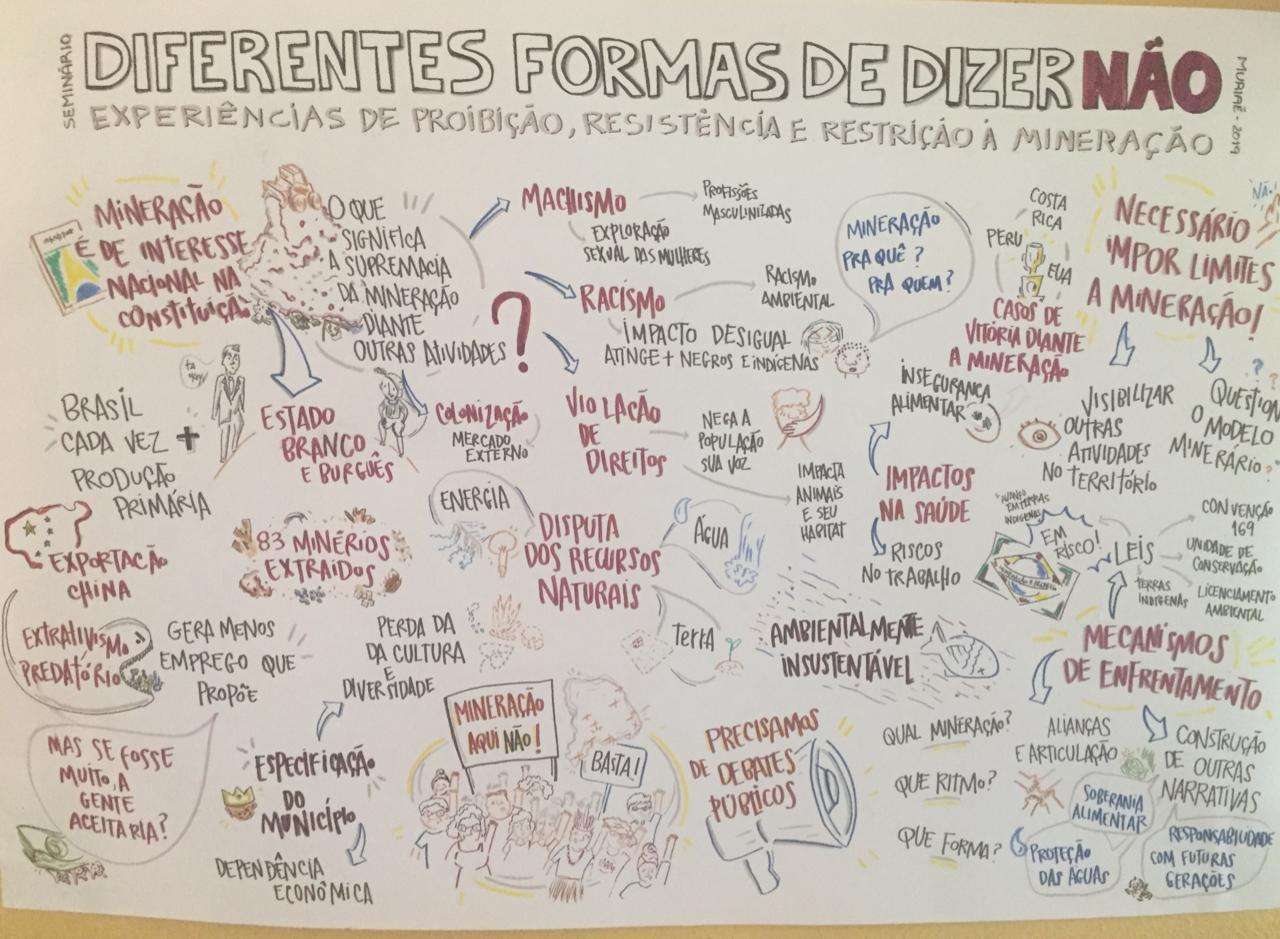 SEMINÁRIO
DIFERENTES FORMAS DE DIZER NÃO
MURIAÉ - 2019
EXPERIÊNCIAS DE PROIBIÇÃO, RESISTÊNCIA E RESTRIÇÃO À MINERAÇÃO
MINERAÇÃO
É DE INTERESSE
NACIONAL NA
CONSTITUIÇÃO
O QUE
SIGNIFICA
A SUPREMACIA
DA MINERAÇÃO
DIANTE
OUTRAS ATIVIDADES?
MACHISMO
PROFISSÕES
MASCULINIZADAS
EXPLORAÇÃO
SEXUAL DAS MULHERES
RACISMO
RACISMO
AMBIENTAL
IMPACTO DESIGUAL
ATINGE + NEGROS E INDÍGENAS
MINERAÇÃO
PRA QUÊ?
PRA QUEM?
COSTA
RICA
PERU
EUA
CASOS DE
VITÓRIA DIANTE
A MINERAÇÃO
NÃO!
NECESSÁRIO
IMPOR LIMITES
A MINERAÇÃO!
VISIBILIZAR
OUTRAS
ATIVIDADES
NO TERRITÓRIO
QUESTION
O MODELO
MINERÁRIO?
BRASIL
CADA VEZ +
PRODUÇÃO
PRIMÁRIA
ESTADO
BRANCO
E BURGUÊS
COLONIZAÇÃO
MERCADO
EXTERNO
VIOLAÇÃO
DE
DIREITOS
NEGA A
POPULAÇÃO
SUA VOZ
IMPACTA
ANIMAIS
E SEU
HABITAT
INSEGURANÇA
ALIMENTAR
IMPACTOS
NA SAÚDE
RISCOS
NO TRABALHO
EXPORTAÇÃO
CHINA
83 MINÉRIOS
EXTRAÍDOS
ENERGIA
DISPUTA
DOS RECURSOS
NATURAIS
ÁGUA
TERRA
AMBIENTALMENTE
INSUSTENTÁVEL
EM
RISCO!
LEIS
CONVENÇÃO
169
UNIDADE DE
CONSERVAÇÃO
LICENCIAMENTO
AMBIENTAL
TERRAS
INDÍGENAS
MECANISMOS
DE ENFRENTAMENTO
EXTRATIVISMO
PREDATÓRIO
GERA MENOS
EMPREGO QUE
PROPÕE
MAS SE FOSSE
MUITO, A
GENTE
ACEITARIA?
PERDA DA
DA CULTURA
E
DIVERSIDADE
ESPECIFICAÇÃO
DO
MUNICÍPIO
DEPENDÊNCIA
ECONÔMICA
MINERAÇÃO
AQUI NÃO!
BASTA!
PRECISAMOS
DE DEBATES
PÚBLICOS
QUAL MINERAÇÃO?
QUE RITMO?
QUE FORMA?
ALIANÇAS
E ARTICULAÇÃO
CONSTRUÇÃO
DE OUTRAS
NARRATIVAS
SOBERANIA
ALIMENTAR
PROTEÇÃO
DAS ÁGUAS
RESPONSABILIDADE
COM FUTURAS
GERAÇÕES